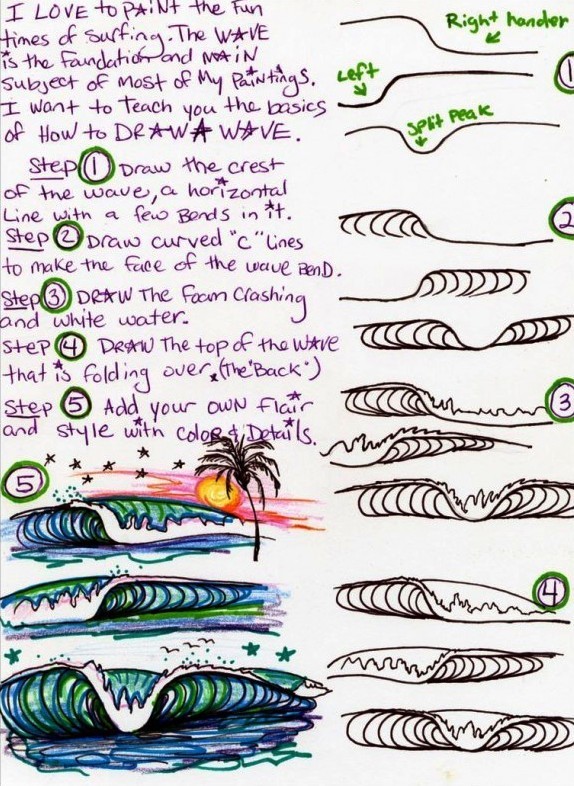 I LOVE to PAiNt the Fun
times of Surfing. The WAVE
is the Foundation and MAiN
Subject of Most of My Paintings.
I want to Teach you the basics
of How to DRAW A WAVE.
Step 1 Draw the crest
of the wave, a horizontal
Line with a few Bends in it.
Step 2 Draw curved "c" lines
to make the face of the wave BenD.
Step 3 DRAW The Foam Crashing
and white water.
Step 4 DRAW The top of the WAVE
that is folding over, (The "Back")
Step 5 Add your own flair
and style with Color & Details.
5
Right hander
Left
Split Peak
1
2
3
4